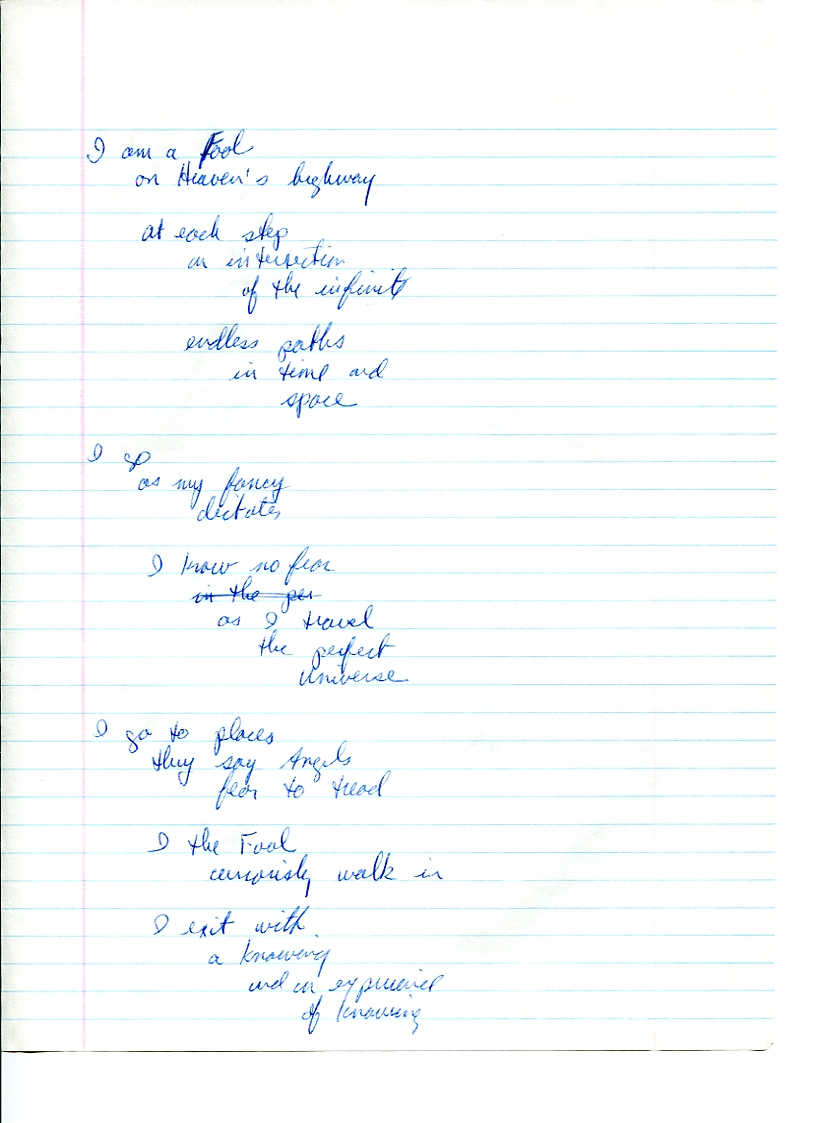 I am a Fool
on Heaven's highway
at each step
an intersection
of the infinite
endless paths
in time and
space
I go
as my fancy
dictates
I know no fear
in the per
as I travel
the perfect
Universe
I go to places
they say Angels
fear to tread
I the Fool
curiously walk in
I exit with
a knowing
and an experience
of knowing